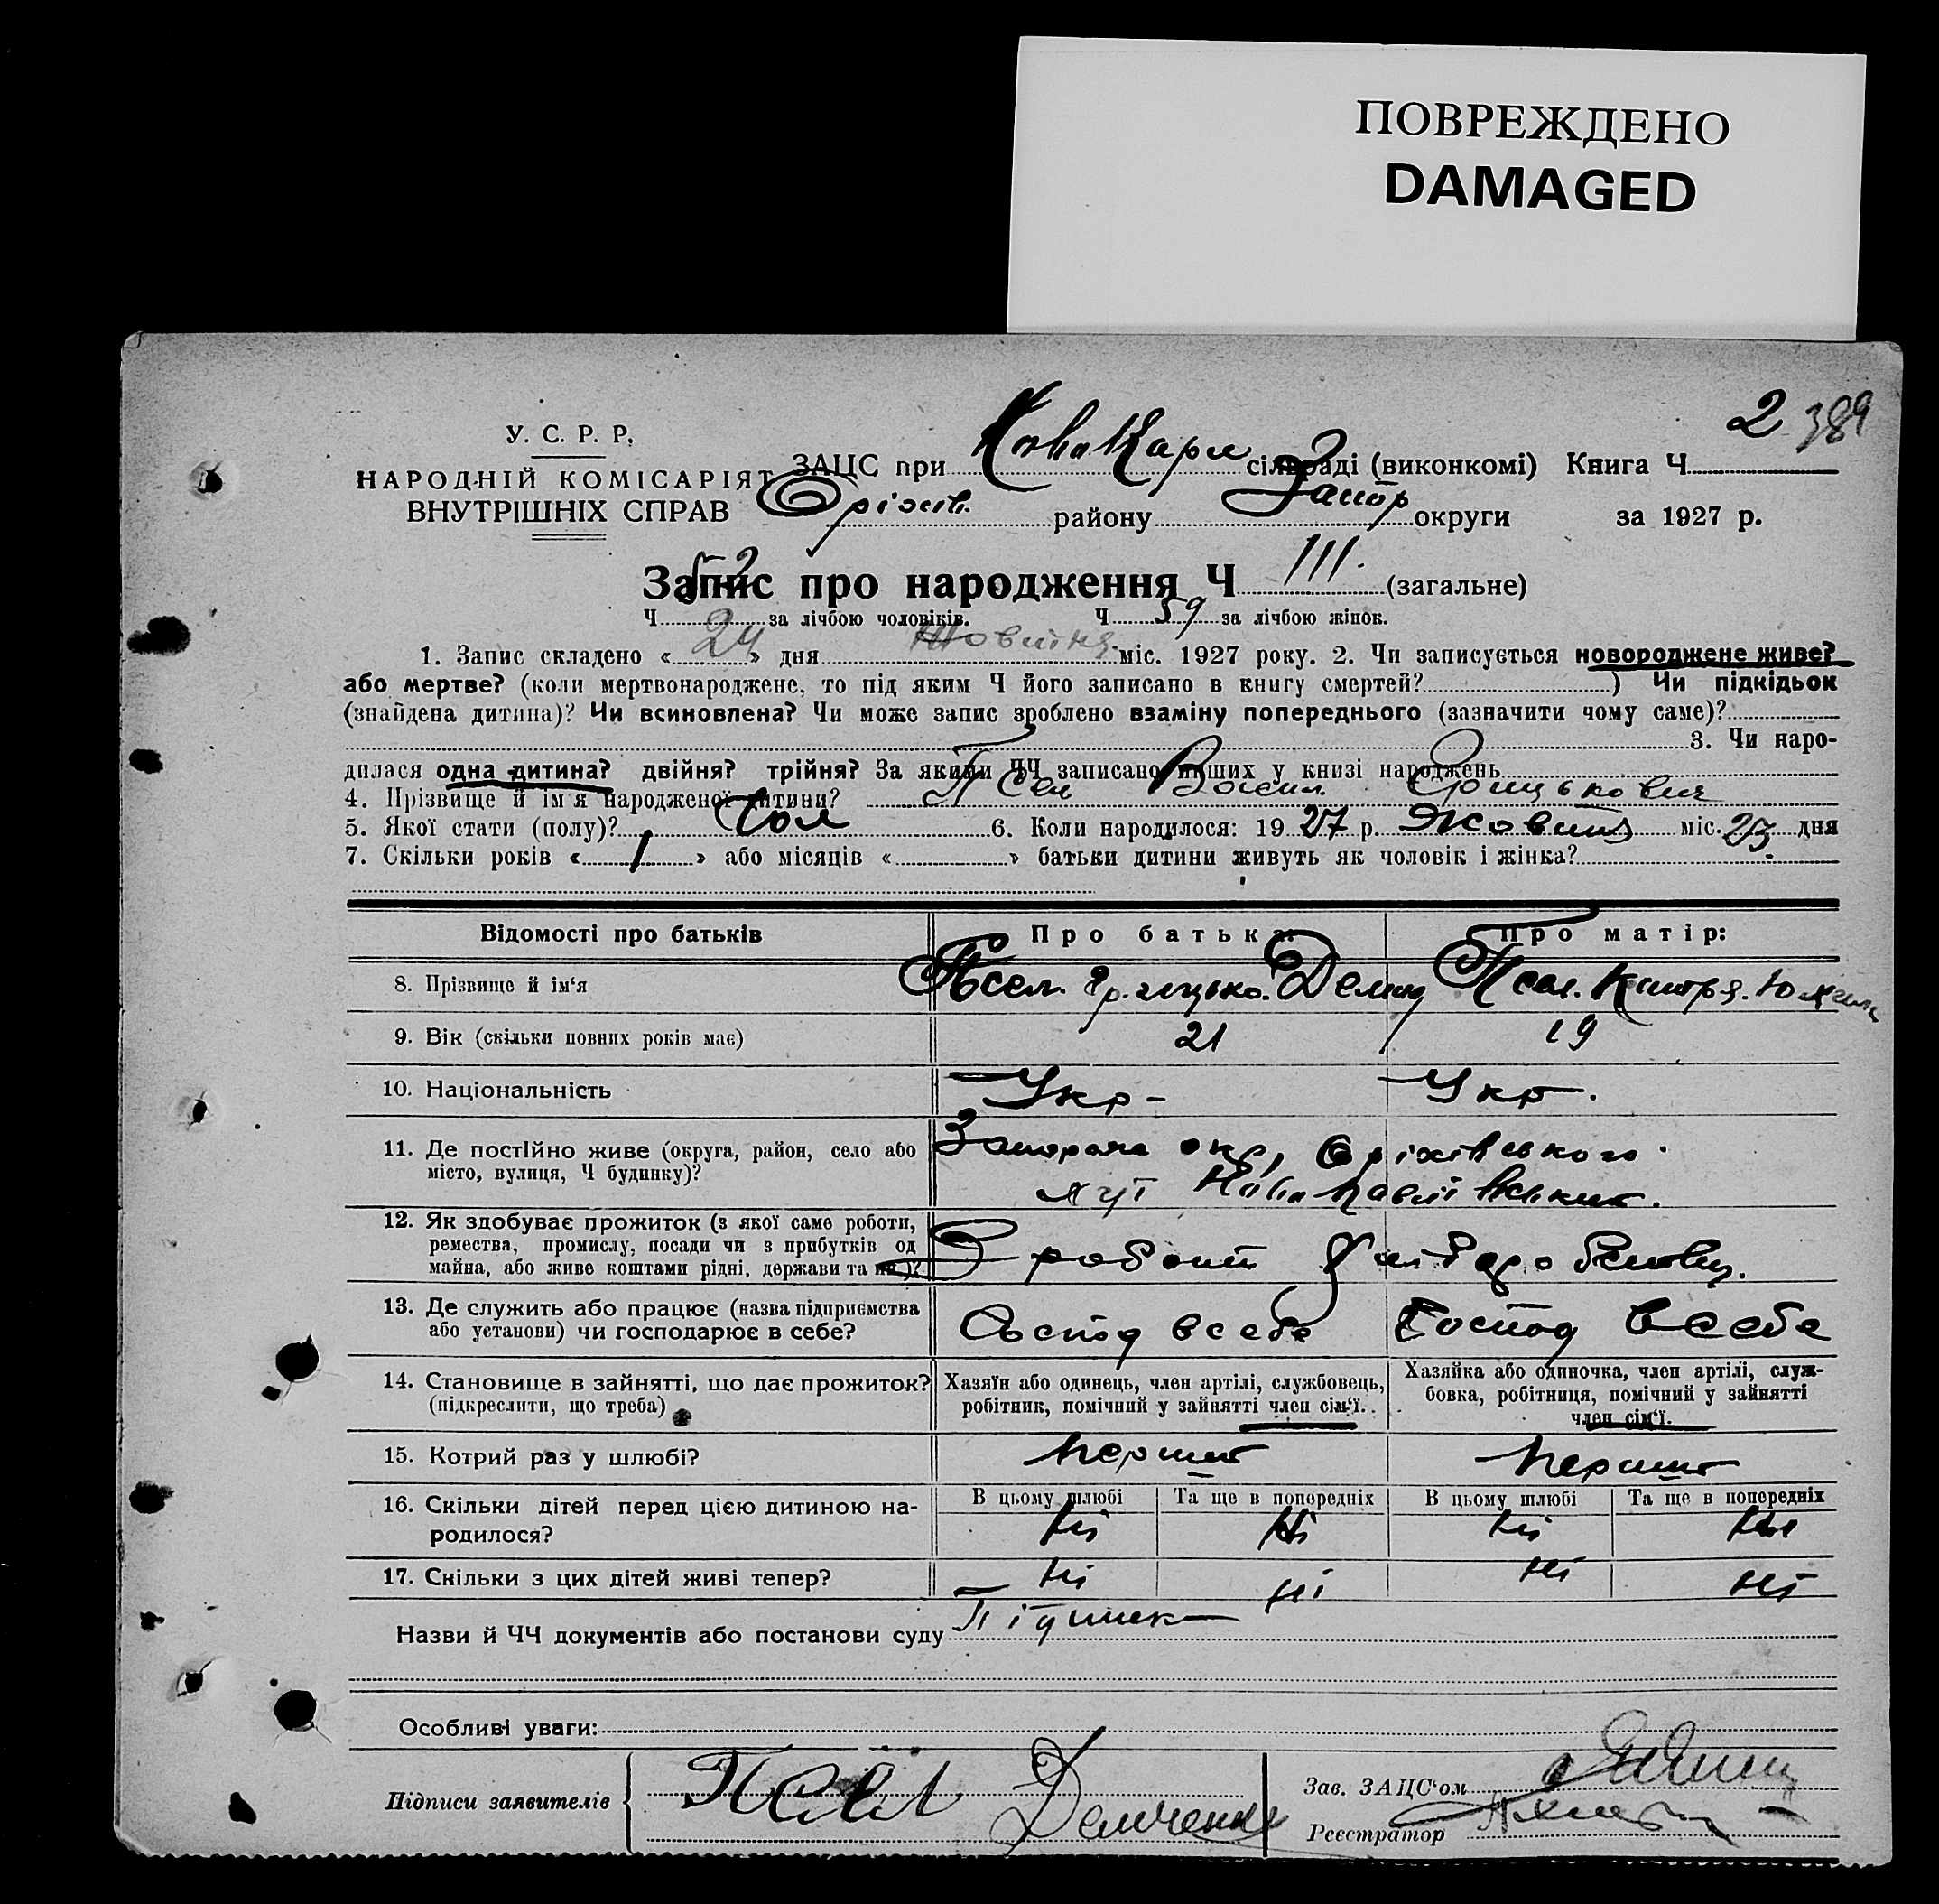 ПОВРЕЖДЕНО
DAMAGED
2 389
У. С. Р. Р.
НАРОДНІЙ КОМІСАРІЯТ
ВНУТРІШНІХ СПРАВ
ЗАЦС при сільраді (виконкомі) Книга Ч
Оріхів. району Запор округи за 1927 р.
Запис про народження Ч 111. (загальне)
Ч 52 за лічбою чоловіків. Ч 59 за лічбою жінок.
1. Запис складено « 24 » дня Жовтня міс. 1927 року. 2. Чи записується новороджене живе?
або мертве? (коли мертвонароджене, то під яким Ч його записано в книгу смертей? ) Чи підкідьок
(знайдена дитина)? Чи всиновлена? Чи може запис зроблено взаміну попереднього (зазначити чому саме)?
3. Чи наро-
дилася одна дитина? двійня? трійня? За якими ЧЧ записано інших у книзі народжень
4. Прізвище й ім'я народженої дитини? Псел Васил Грицькович
5. Якої стати (полу)? Чол 6. Коли народилося: 19 27 р. Жовтня міс. 23 дня
7. Скільки років « 1 » або місяців « » батьки дитини живуть як чоловік і жінка?
Відомості про батьків Про батька: Про матір:
8. Прізвище й ім'я Псел. Грицько. Демид Псел.
9. Вік (скільки повних років має) 21 19
10. Національність Укр- Укр.
11. Де постійно живе (округа, район, село або Запоріжа окр, Оріхівського
місто, вулиця, Ч будинку)? хут Ново Павлівський.
12. Як здобуває прожиток (з якої саме роботи, ремества, промислу, посади чи з прибутків од майна, або живе коштами рідні, держави та ин.)? З работи
13. Де служить або працює (назва підприємства або установи) чи господарює в себе? Господ в себе Господ в себе
14. Становище в зайнятті, що дає прожиток? (підкреслити, що треба)
Хазяїн або одинець, член артілі, службовець, робітник, помічний у зайнятті член сім'ї.
Хазяйка або одиночка, член артілі, служ-
бовка, робітниця, помічний у зайнятті
член сім'ї.
15. Котрий раз у шлюбі? перший перший
16. Скільки дітей перед цією дитиною на-
родилося? В цьому шлюбі Та ще в попередніх В цьому шлюбі Та ще в попередніх
Ні Ні Ні Ні
17. Скільки з цих дітей живі тепер? Ні Ні Ні Ні
Назви й ЧЧ документів або постанови суду
Особливі уваги:
Підписи заявителів Псел Зав. ЗАЦС'ом
Демченко Реєстратор